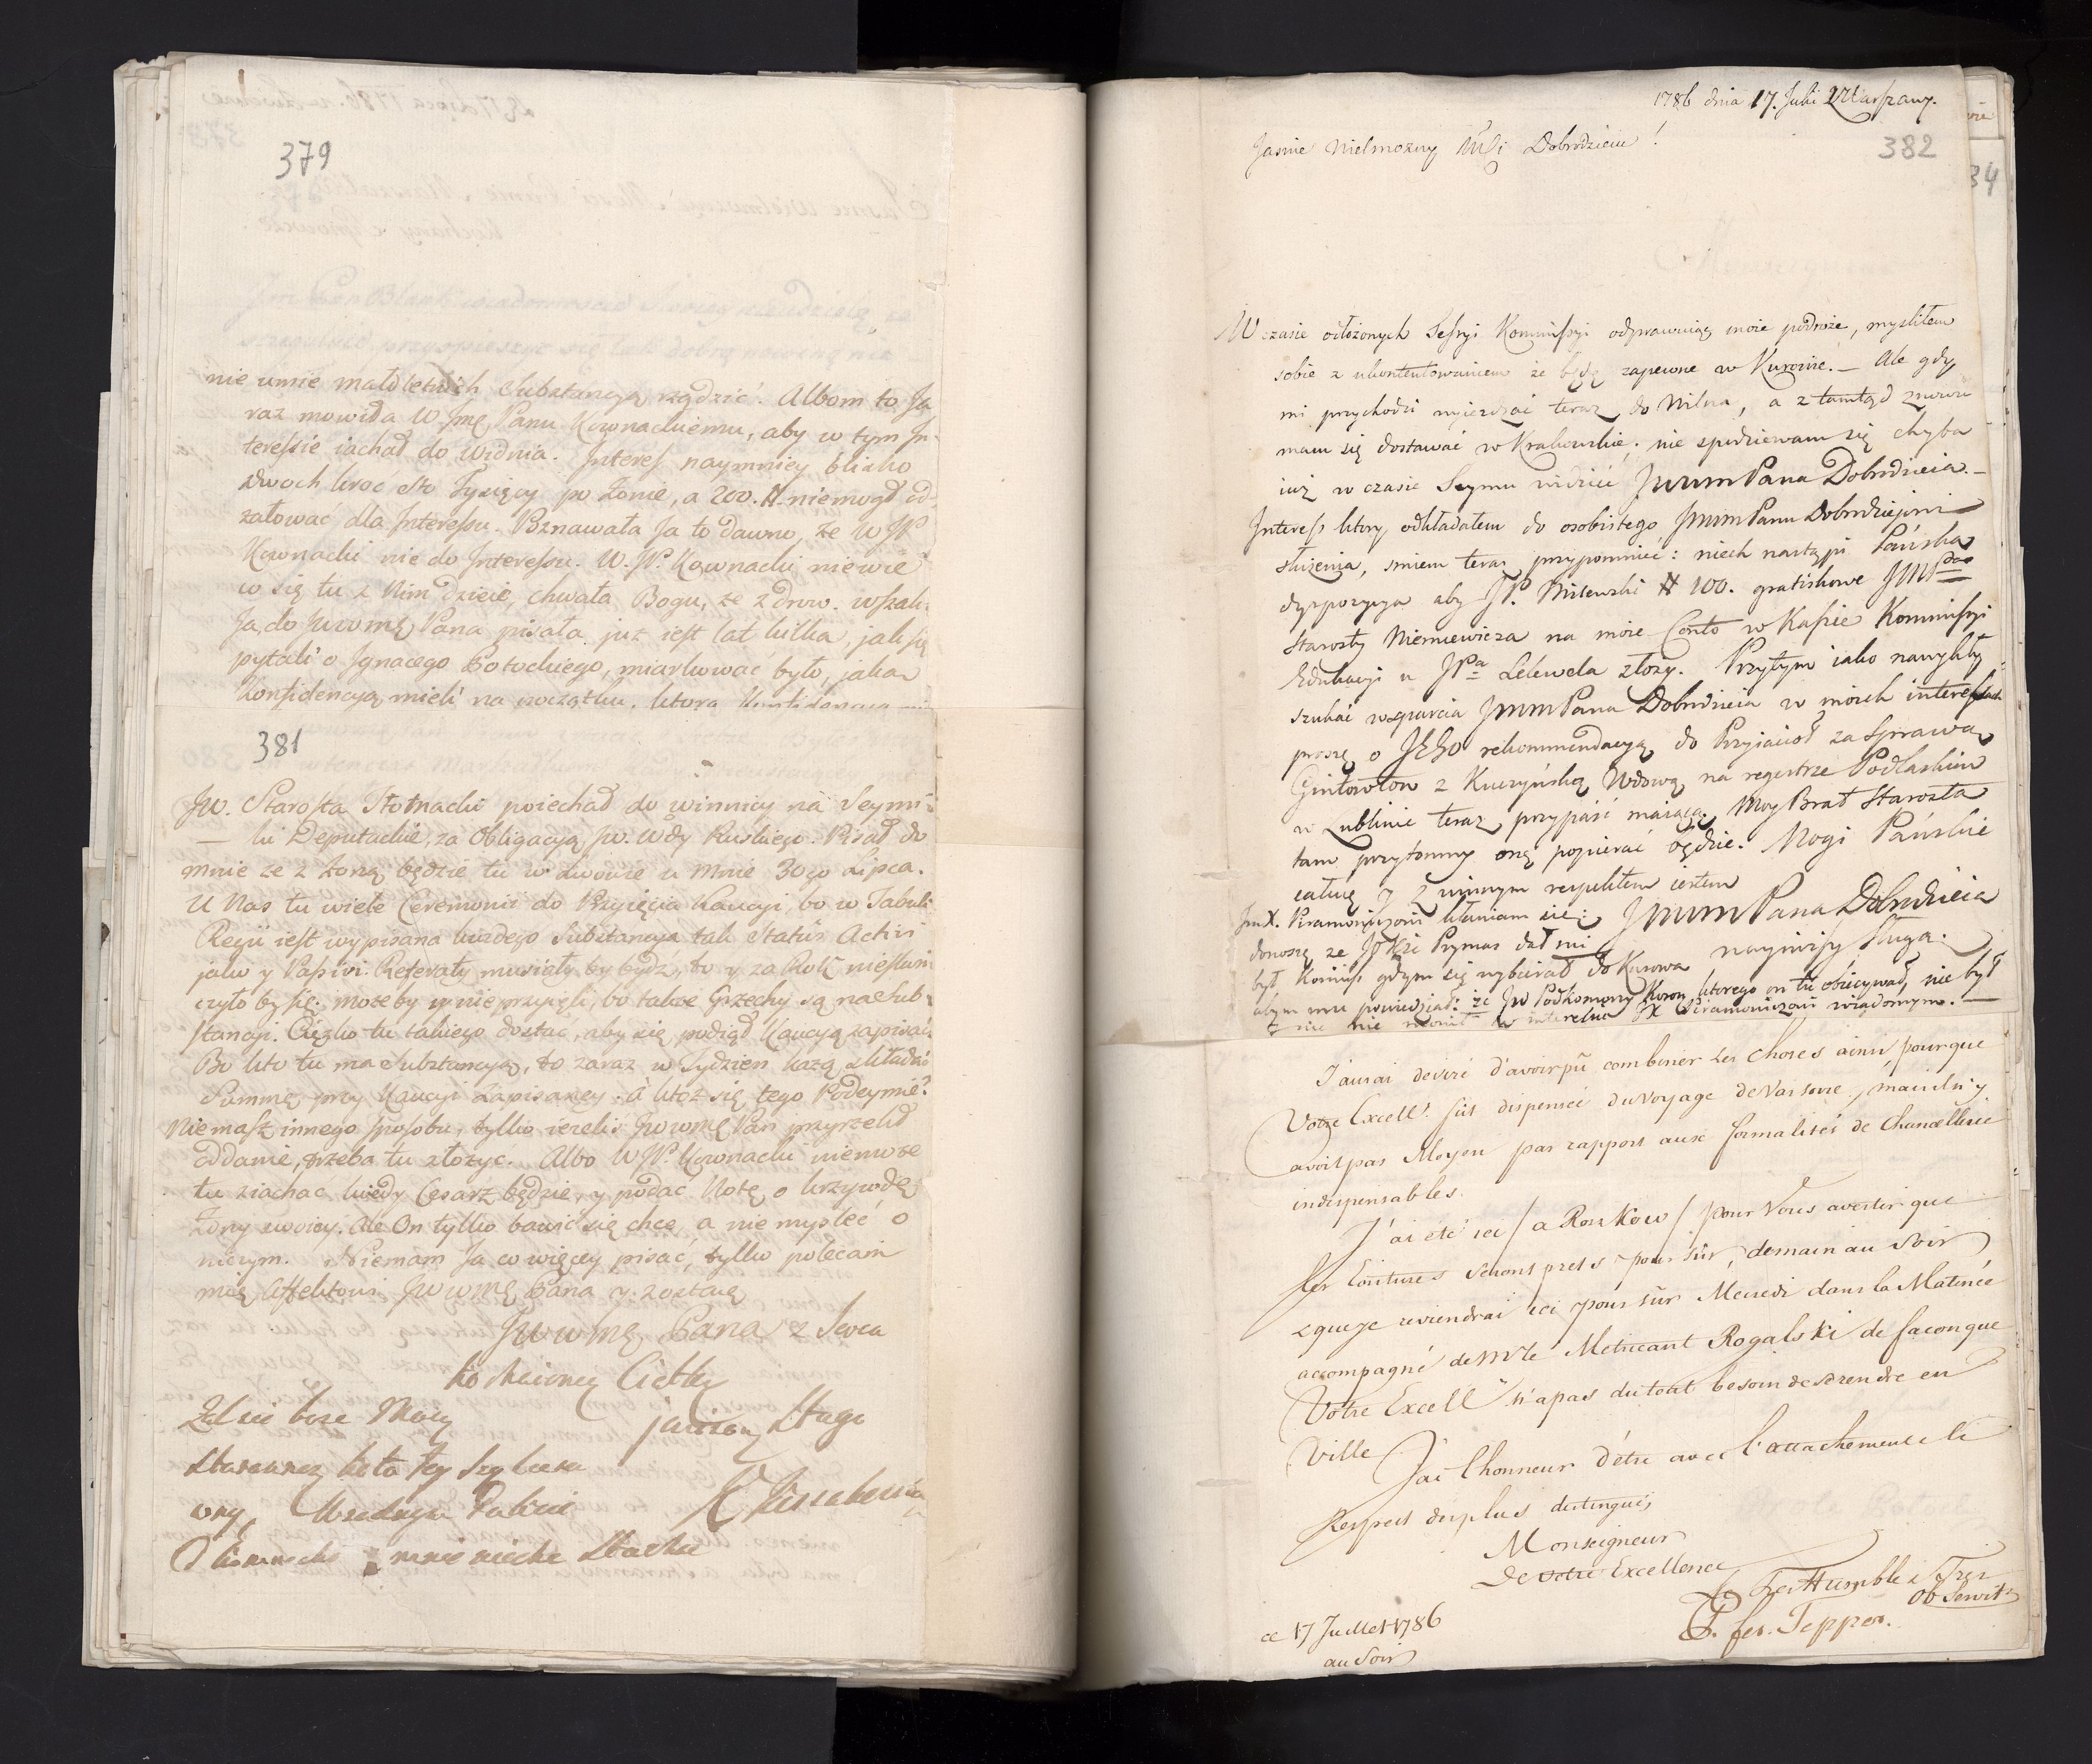 379
nie umie małoletnich Substancyą rządzić. Albom to Ja
raz mowiła W Jmę Panu Kownackiemu, aby w tym In-
teressie iachał do Widnia. Interes naymniey blisko
dwoch kroć sto Tysięcy po Żonie, a 200. # niemogł od-
żałować dla Interessu. Poznawała Ja to dawno, że W JP
Kownacki nie do Interessu. W. JP. Kownacki niewie
co się tu z Nim dzieie, chwała Bogu, że zdrow. wszak
Ja do Jwwmę Pana pisała już iest lat kilka, jak się
pytali o Ignacego Potockiego, miarkować było, jaka
Konfidencyą mieli na początku, ktora Konfidencya
381
Jw. Starosta Tłomacki poiechał do Winnicy na Seymi-
ki Deputackie, za Obligacyą Jw. Wdy Ruskiego. Pisał do
mnie że z Żoną będzie tu w Lwowie u mnie 30go Lipca.
U Nas tu wiele Ceremonii do Przyięcia Kaucyi, bo w Tabuli
Regii iest wypisana każdego Substancya tak Status Activi
jako y Passivi. Referaty musiały by bydź, to y za Rok nieskoń-
czyło by się. może by y nie przyięli, bo takie Grzechy są na Sub-
stancyi. Ciężko tu takiego dostać, aby się podiął Kaucyą zapisać.
Bo kto tu ma Substancyą, to zaraz w Tydzień każą składać
Summę przy Kaucyi Zapisaney. A ktoż się tego Podeymie?
Niemasz innego sposobu, tylko ieżeli Jwwmę Pan przyrzekł
oddanie, trzeba tu złożyć. Albo W JP. Kownacki niemoże
tu ziachać kiedy Cesarz będzie, y podać Notę o krzywdę
Żony swoiey. Ale On tylko bawić się chce, a nie mysleć o
niczym. Niemam Ja co więcey pisać, tylko polecam
mię Affektowi Jwwmę Pana y zostaię
Jwwmę Pana z Serca
kochaiącą Ciotką
Sługą
1786 dnia 17. Julii z Warszawy.
382
34
Jasnie Wielmożny Mści Dobrodzieiu!
W czasie odłożonych Sessyi Kommissyi odprawuiąc moie podroże, myśliłem
sobie z ukontentowaniem że będę zapewne w Kurowie. — Ale gdy
mi przychodzi wyieżdżać teraz do Wilna, a z tamtąd znowu
mam się dostawać w Krakowskie; nie spodziewam się chyba
iuż w czasie Seymu widzieć JWWM Pana Dobrodzieia. —
Interess ktory odkładałem do osobistego JWWM Panu Dobrodzieiowi
służenia, smiem teraz przypomnieć: niech nastąpi Pańska
dyspozycya aby JP. Milewski # 100. gratiskowe JMP
Starosty Niemiewicza na moie Conto w Kassie Kommissyi
Edukacyi u JPa Lelewela złożył. Przytym iako nawykły
szukać wsparcia JWWM Pana Dobrodzieia w moich interessach
proszę o JEGO rekommendacyą do Przyiacioł za Sprawą
Gintowtow z Kuczyńską Wdową na regestrze Podlaskim
w Lublinie teraz przypaść maiącą. Moy Brat Starosta
tam przytomny onę popierać będzie. Nogi Pańskie
całuię y z winnym respektem iestem
JWWM Pana Dobrodzieia
nayniższy sługa.
Jm X. Piramowiczowi kłaniam się;
donoszę że JO Xże Prymas dał mi
był Kommis gdym się wybierał do Kurowa
abym mu powiedział: że Jw Podkomorzy Koron, ktorego on tu obiecywał, nie był
z nie nie mowił w interesie JX Piramowiczowi wiadomym. —
J'aurai desiré d'avoir pû combiner les choses ainsi pour que
Votre Excell. fût dispensée du Voyage de Varsovie, mais il n'y
avoit pas Moyen par rapport aux formalités de Chancellerie
indispensables.
J'ai été ici / a Roszkow / pour Vous avertir que
les Ecritures seront prets pour sûr, demain au Soir
& que je reviendrai ici pour sûr Mercredi dans la Matinée
accompagné de Mr le Metricant Rogalski de facon que
Votre Excell. n'a pas du tout besoin de se rendre en
Ville. J'ai l'honneur d'être avec l'attachement & le
Respect du plus distingués
Monseigneur
De Votre Excellence
le Tres Humble & Tres
Ob Servit
P. fer. Tepper.
ce 17 Juillet 1786
au Soir